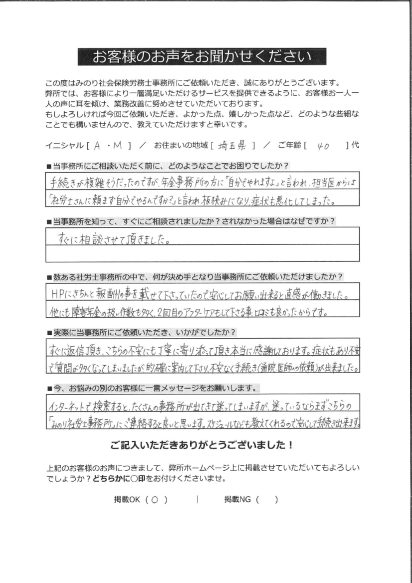 お客様のお声をお聞かせください
この度はみのり社会保険労務士事務所にご依頼いただき、誠にありがとうございます。
弊所では、お客様により一層満足いただけるサービスを提供できるように、お客様お一人一
人の声に耳を傾け、業務改善に努めさせていただいております。
もしよろしければ今回ご依頼いただき、よかった点、嬉しかった点など、どのような些細な
ことでも構いませんので、教えていただけますと幸いです。
イニシャル [ A・M ] / お住まいの地域 [ 埼玉県 ] / ご年齢 [ 40 ] 代
■当事務所にご相談いただく前に、どのようなことでお困りでしたか？
手続きが複雑そうだったのですが、年金事務所の方に「自分でやれますよ」と言われ、担当医からは
「社労士さんに頼まず自分でやるんですか?」と言われ、板挟みになり、症状も悪化してしまった。
■当事務所を知って、すぐにご相談されましたか？されなかった場合はなぜですか？
すぐに相談させて頂きました。
■数ある社労士事務所の中で、何が決め手となり当事務所にご依頼いただけましたか？
HPにきちんと報酬の事を載せて下さっていたので安心してお願い出来ると直感が働きました。
他にも障害年金の
2回目のアフターケアもして下さる事
にも良かったからです。
■実際に当事務所にご依頼いただき、いかがでしたか？
すぐに返信頂き、こちらの不安にも丁寧に寄り添って頂き本当に感謝しております。症状もあり不安
で質問が多くなってしまいましたが、的確に案内して下さり、不安なく手続き(
の依頼)が出来ました。
■今、お悩みの別のお客様に一言メッセージをお願いします。
インターネットで検索すると、たくさんの事務所が出てきて迷ってしまいますが、迷っているならまずこちらの
「みのり社労士事務所」にご連絡すると良いと思います。スケジュールなども教えてくれるので安心して手続き出来ます。
ご記入いただきありがとうございました！
上記のお客様のお声につきまして、弊所ホームページ上に掲載させていただいてもよろしい
でしょうか？どちらかに○印をお付けくださいませ。
掲載OK ( ○ ) | 掲載NG ( )